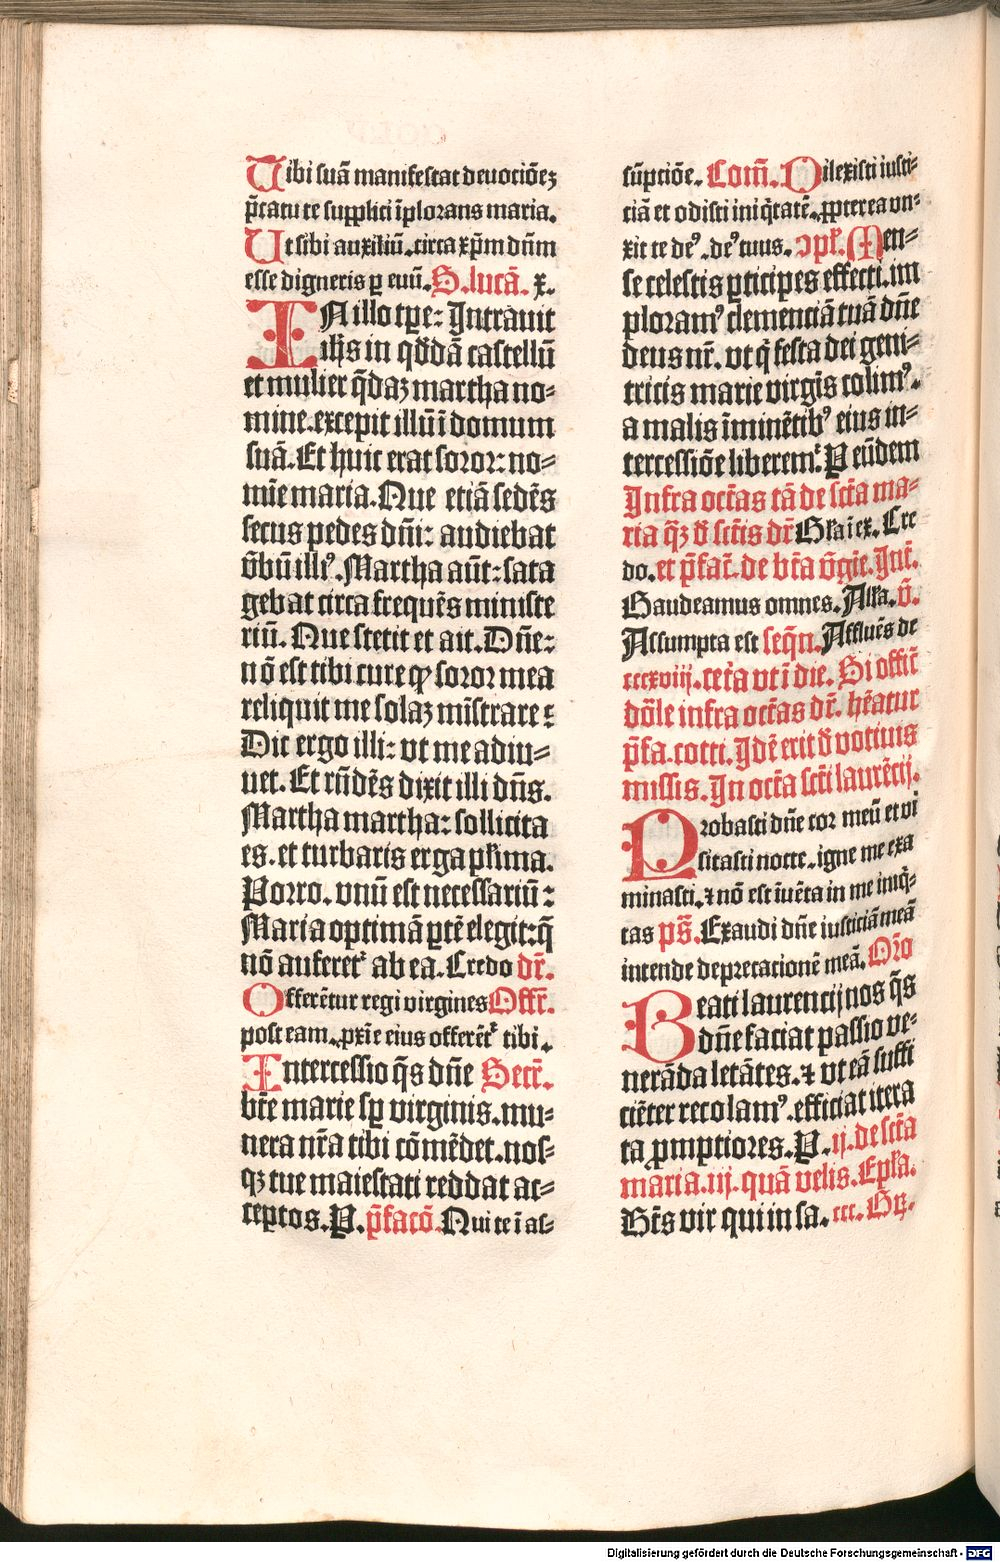 Uibi suā manifestat deuociōeꝫ
p̄catu te supplici īplorans maria.
Ut sibi auxiliū .circa xp̄m dn̄m
esse digneris ꝑ euū. S. lucā. x.
IN illo tꝑe: Intrauit
ih̄s in qd̄dā castellū
et mulier q̄daꝫ martha no⸗
mine.excepit illū ī domum
suā. Et huic erat soror: no⸗
mīe maria. Que etiā sedēs
secus pedes dn̄i: audiebat
v̄bū illi⁹. Martha aūt: sata
gebat circa frequēs ministe
riū. Que stetit et ait. Dn̄e:
nō est tibi cure ꝙ soror mea
reliquit me solaꝫ mīstrare:
Dic ergo illi: vt me adiu⸗
uet. Et rn̄dēs dixit illi dn̄s.
Martha martha: sollicita
es. et turbaris erga pl̄ima.
Porro. vnū est necessariū:
Maria optimā ꝑtē elegit: q̄
nō auferet᷑ ab ea. Credo dr̄.
Offerētur regi virgines Offr̄.
post eam.ꝓxīe eius offerēt᷑ tibi.
Intercessio q̄s dn̄e Secr̄.
btē marie sꝑ virginis. mu⸗
nera nr̄a tibi cōmēdet. nos⸗
qꝫ tue maiestati reddat ac⸗
ceptos. P. p̄facō. Qui te ī as⸗
sūpciōe. Com̄. Dilexisti iusti⸗
ciā et odisti iniq̄tatē .ꝓpterea vn⸗
xit te de⁹ .de⁹ tuus. ↄpl̄. Men⸗
se celestis ꝑticipes effecti. im
ploram⁹ clemenciā tuā dn̄e
deus nr̄. vt q̄ festa dei geni⸗
tricis marie virgīs colim⁹.
a malis īminētib⁹ eius in⸗
tercessiōe liberem᷑. P eūdem
Infra octas tā de scta ma⸗
ria qꝫ d̄ sctis dr̄ Gl̄a ī ex. Cre
do. et p̄fat̄. de bta v̄gīe. Int̄.
Gaudeamus omnes. All̄a. v̄.
Assumpta est seqn̄. Affluēs de
cccxviij. cet̄a vt ī die. Si offic̄
dōle infra octas dr̄. hēatur
p̄fa. cotti. Idē erit d̄ votiuis
missis. In octa scti laurēcij.
Probasti dn̄e cor meū et vi
sitasti nocte. igne me exa
minasti. ⁊ nō est īuēta in me iniq̄⸗
tas ps̄. Exaudi dn̄e iusticiā meā
intende deprecationē meā. Oro
Beati laurencij nos q̄s
dn̄e faciat passio ve⸗
nerāda letātes. ⁊ vt eā suffi
ciēter recolam⁹ .efficiat itera
ta ꝓmptiores. P. ij. de scta
maria. iij. quā velis. Epl̄a.
Bt̄s vir qui in sa. ccc. Gꝶ.
Digitalisierung gefördert durch die Deutsche Forschungsgemeinschaft - DFG